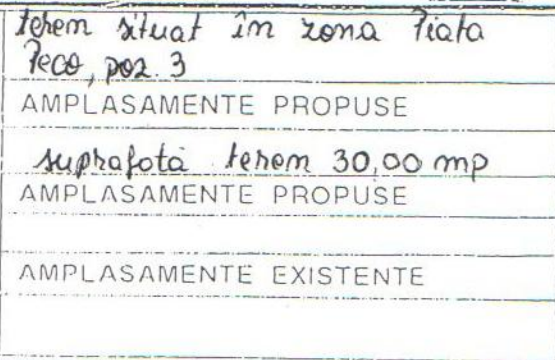 teren situat în zona Piata
Peco, poz. 3
AMPLASAMENTE PROPUSE
suprafată teren 30,00 mp
AMPLASAMENTE PROPUSE
AMPLASAMENTE EXISTENTE